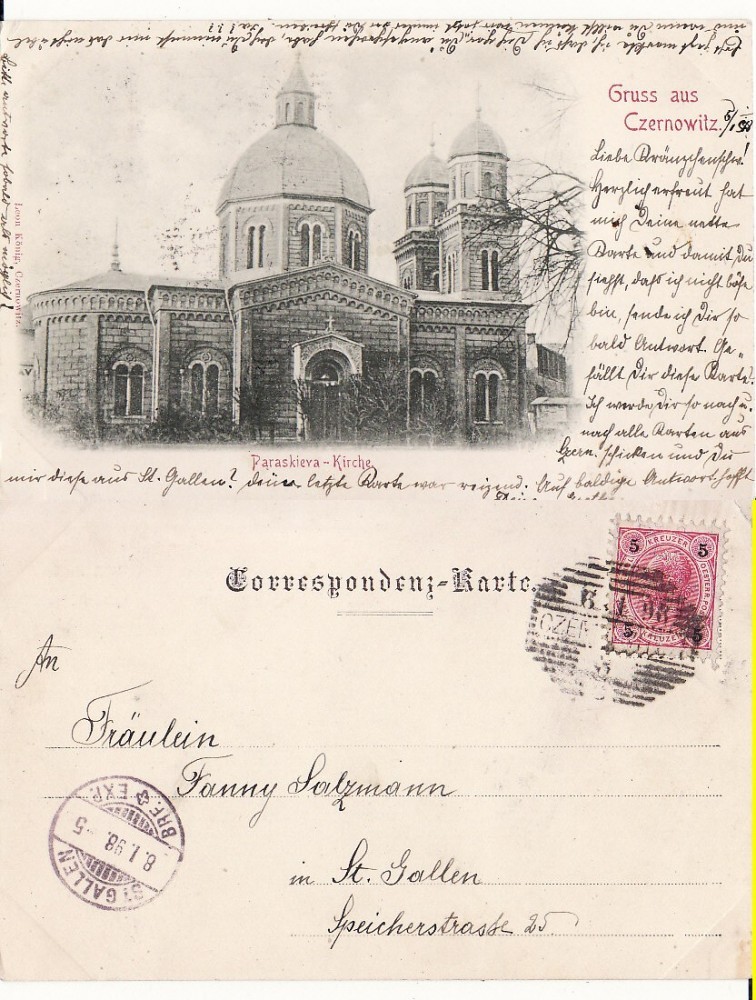 Gruss aus
Czernowitz. 5/1 98
Liebe Kränzchenschw!
Herzlich erfreut hat
mich Deine nette
Karte und damit Du
siehst, dass ich nicht böse
bin, sende ich Dir so
bald Antwort. Ge-
fällt Dir diese Karte?
Ich werde Dir so nach u.
nach alle Karten aus
Czern. schicken und Du
mir diese aus St. Gallen? Deine letzte Karte war reizend. Auf baldige Antwort hofft
Bitte antworte sobald als möglich!
Leon König, Czernowitz.
Paraskieva-Kirche.
Correspondenz-Karte.
5 KREUZER 5
5 KREUZER 5
6 1 98
CZER
An
Fräulein
Fanny Salzmann
in St. Gallen
Speicherstrasse 25
ST. GALLEN
8.I.98.-5
BRF. EXP.